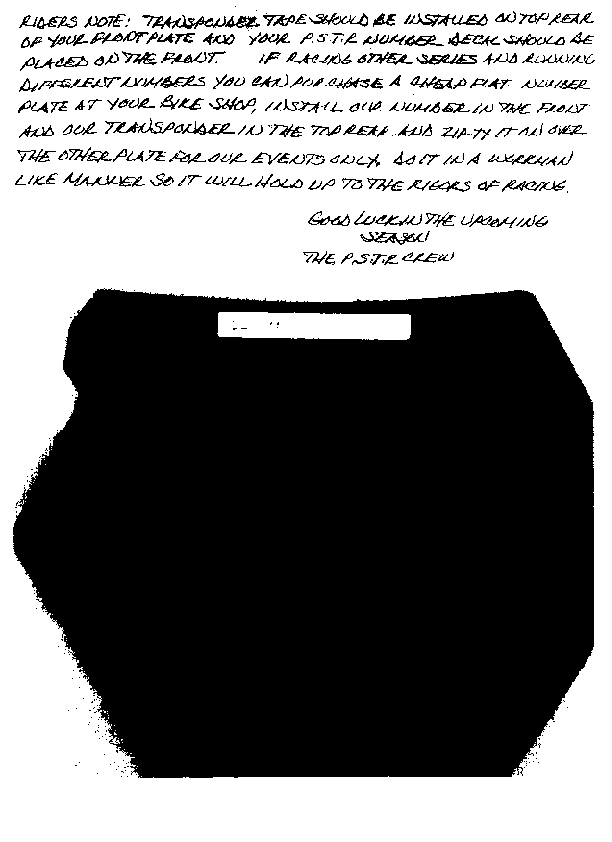 RIDERS NOTE: TRANSPONDER TAPE SHOULD BE INSTALLED ON TOP REAR
OF YOUR FRONT PLATE AND YOUR P.S.T.R NUMBER DECAL SHOULD BE
PLACED ON THE FRONT. IF RACING OTHER SERIES AND RUNNING
DIFFERENT NUMBERS YOU CAN PURCHASE A CHEAP FLAT NUMBER
PLATE AT YOUR BIKE SHOP, INSTALL OUR NUMBER IN THE FRONT
AND OUR TRANSPONDER IN THE TOP REAR AND ZIP-TY IT ON OVER
THE OTHER PLATE FOR OUR EVENTS ONLY. DO IT IN A WORKMAN
LIKE MANNER SO IT WILL HOLD UP TO THE RIGORS OF RACING.
GOOD LUCK IN THE UPCOMING
SEASON
THE P.S.T.R CREW